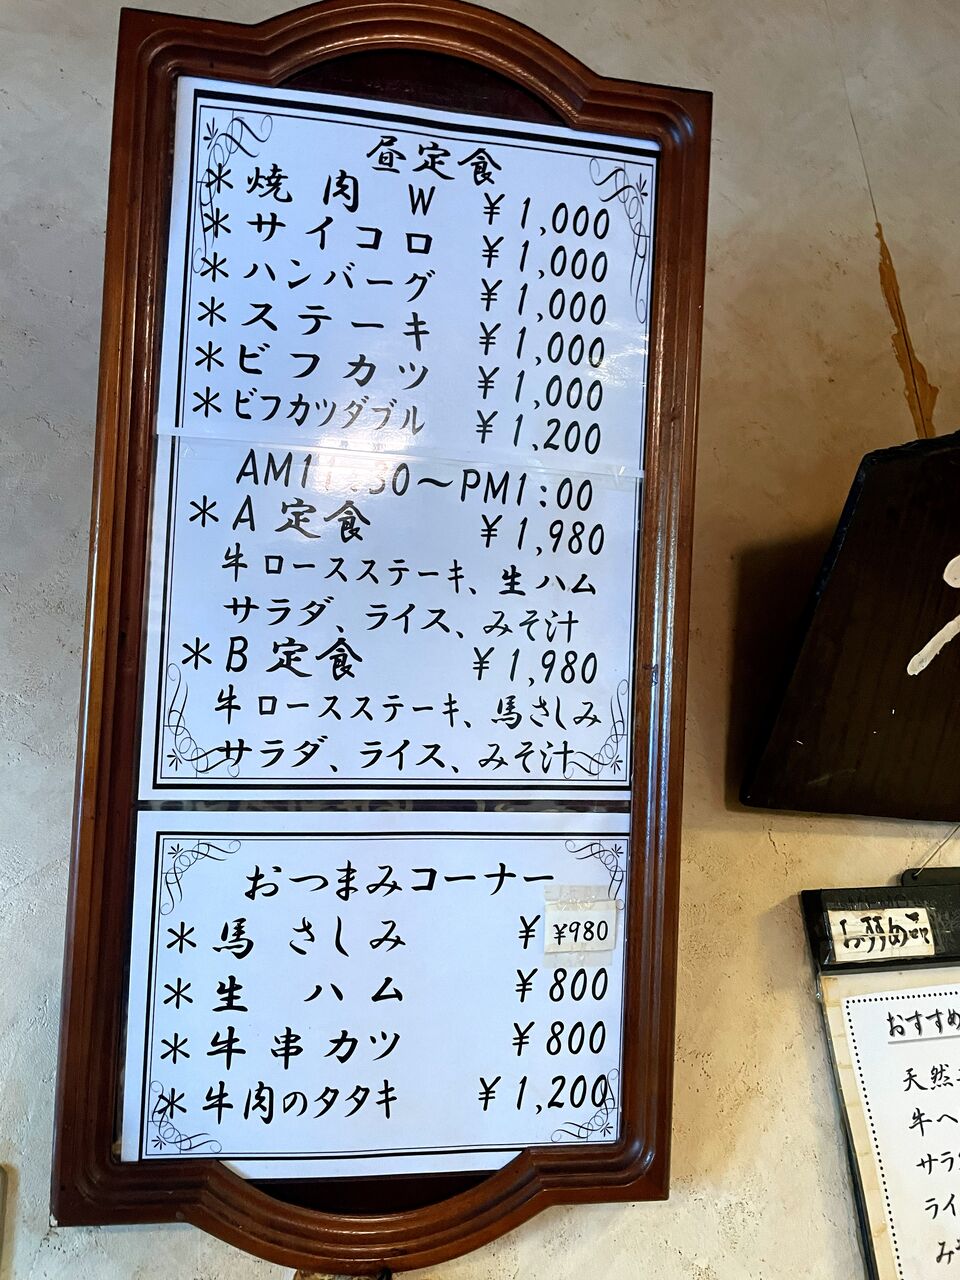 昼定食
＊焼肉W ￥1,000
＊サイコロ ￥1,000
＊ハンバーグ ￥1,000
＊ステーキ ￥1,000
＊ビフカツ ￥1,000
＊ビフカツダブル ￥1,200
AM11:30～PM1:00
＊A定食 ￥1,980
牛ロースステーキ、生ハム
サラダ、ライス、みそ汁
＊B定食 ￥1,980
牛ロースステーキ、馬さしみ
サラダ、ライス、みそ汁
おつまみコーナー
＊馬さしみ ￥ ¥980
＊生ハム ￥800
＊牛串カツ ￥800
＊牛肉のタタキ ￥1,200
おすすめ
天然
牛ヘ
サラ
ライ
み